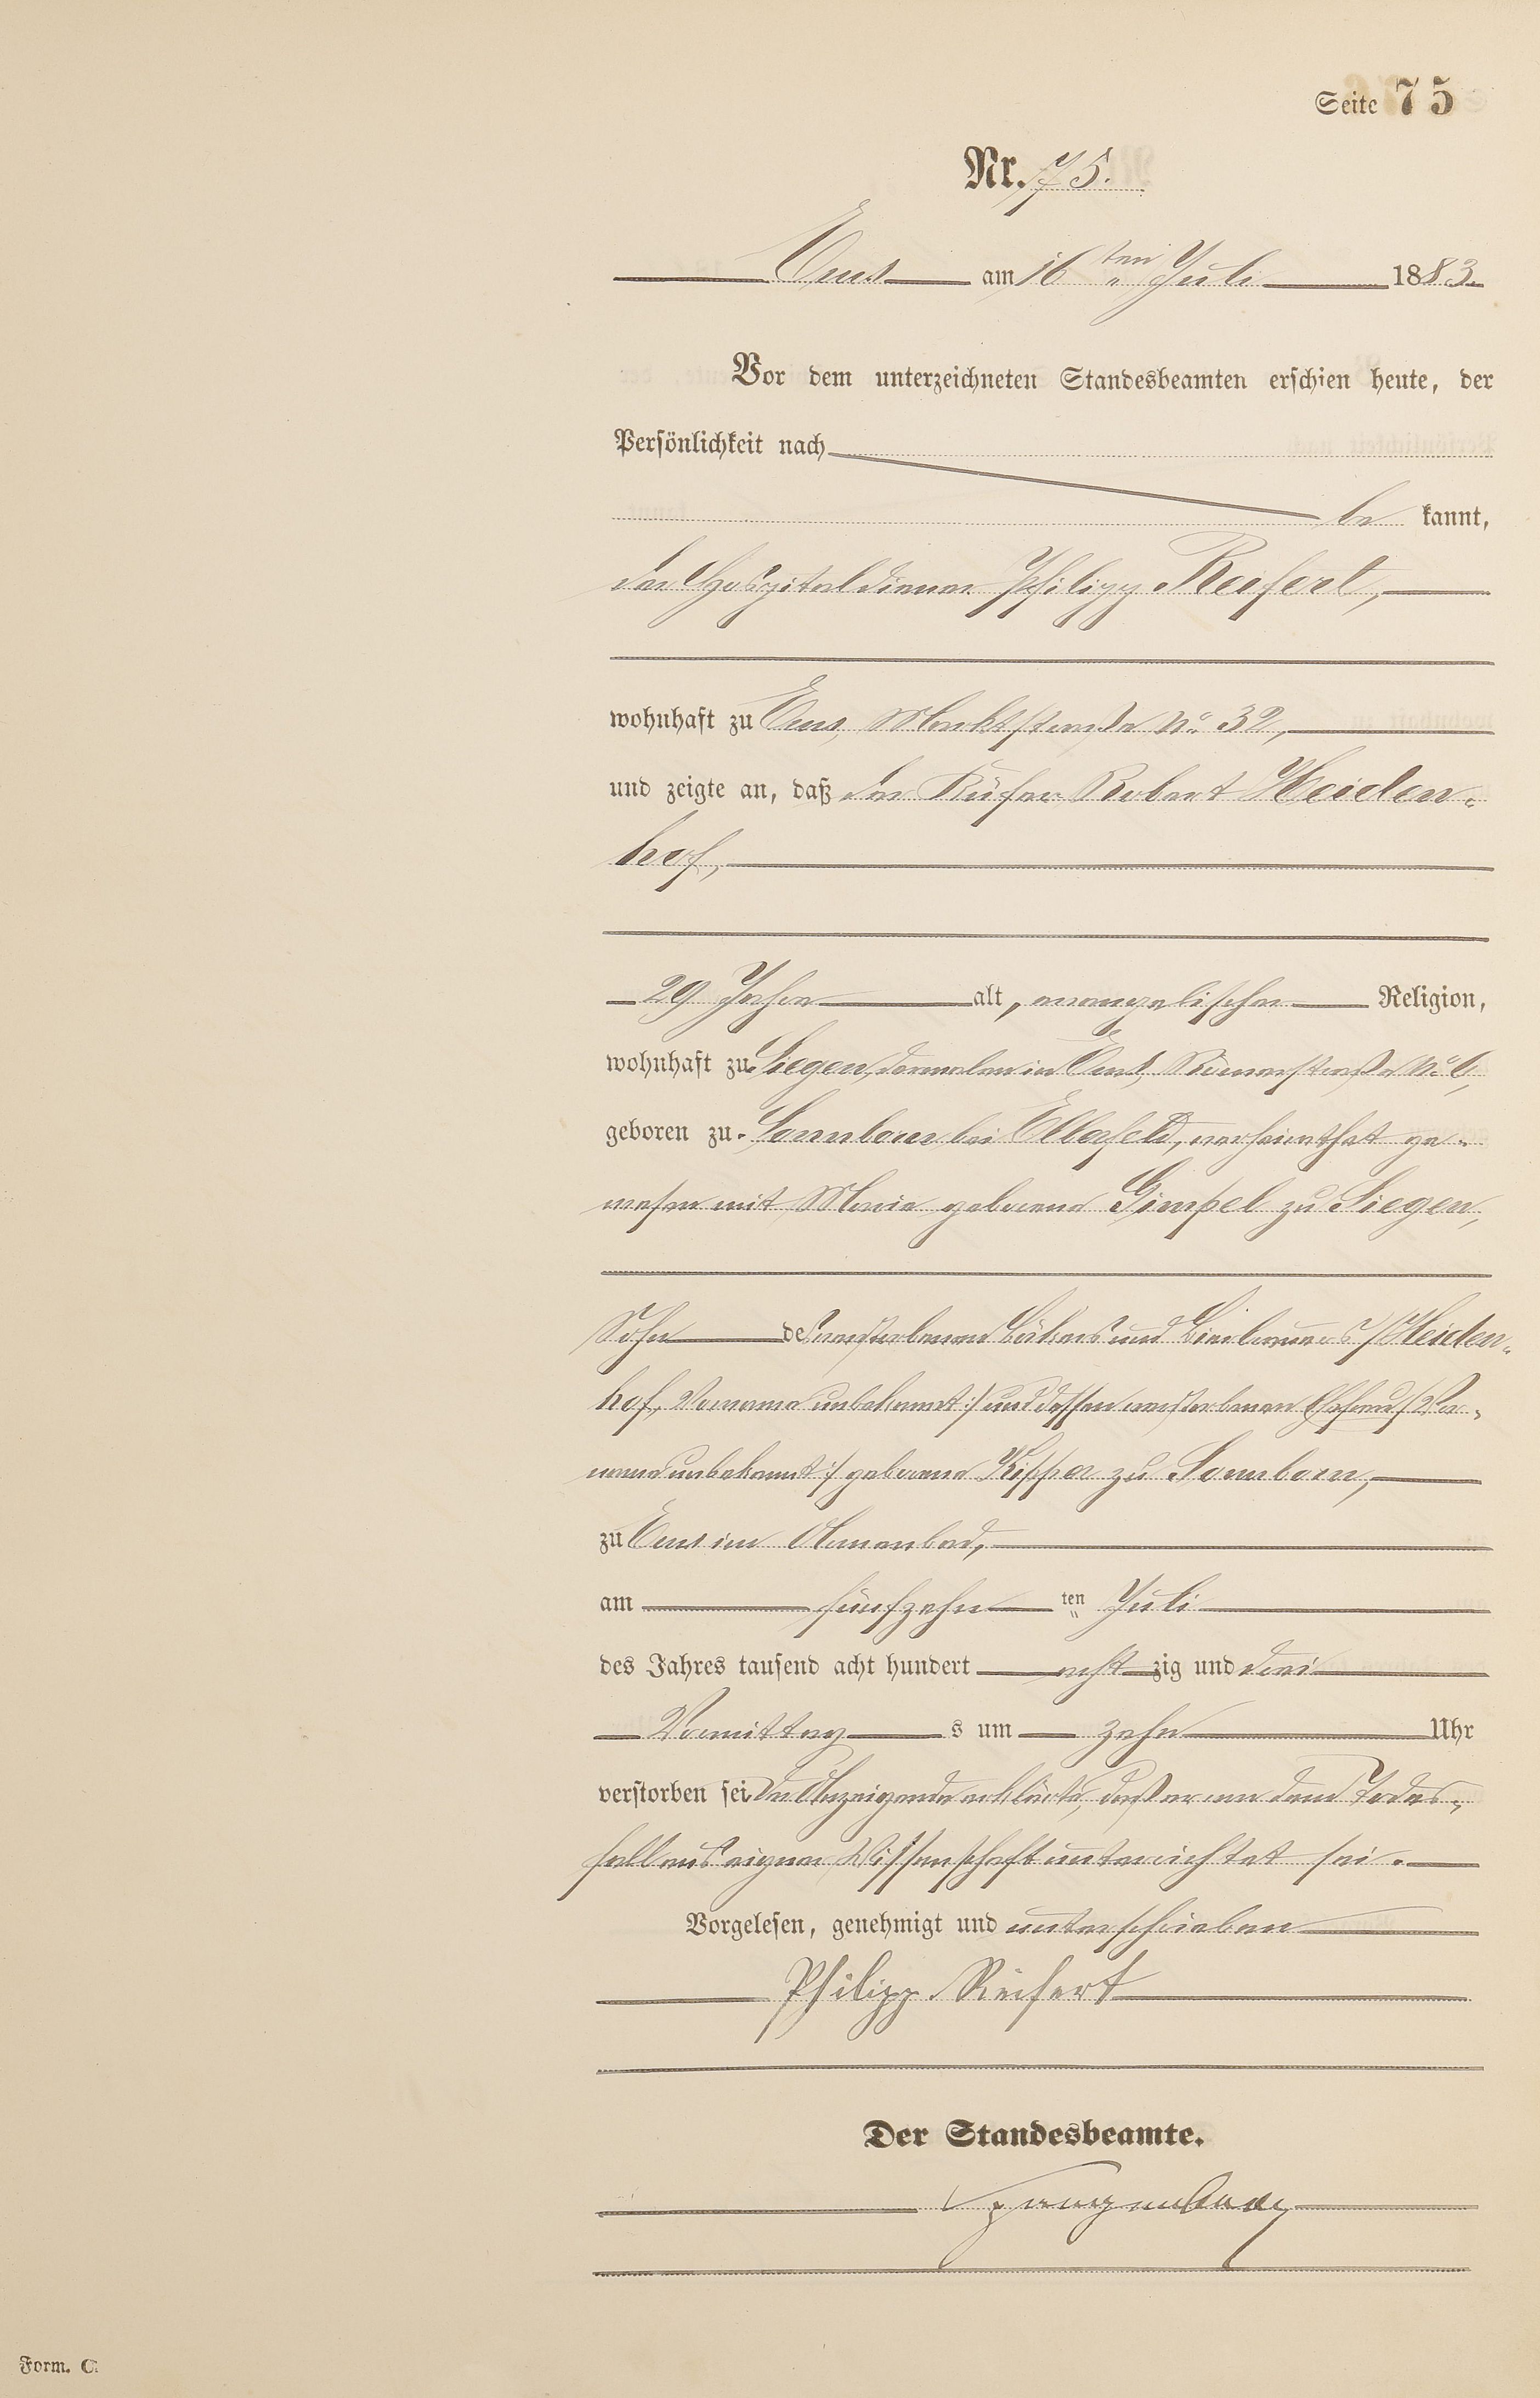 Seite 75
Nr. 75.
Ems am 16ten Juli 1883.
Vor dem unterzeichneten Standesbeamten erschien heute, der
Persönlichkeit nach
be kannt,
der Hospitaldiener Philipp Reifert,
wohnhaft zu Ems, Marktstraße No. 32,
und zeigte an, daß der Küfer Robert Heiden-
hof,
29 Jahre alt, evangelischer Religion,
wohnhaft zu Siegen, dermalen in Ems, Römerstraße No. 6,
geboren zu Sonnborn bei Elberfeld, verheirathet ge-
wesen mit Marie geborene Gimpel zu Siegen,
Sohn des verstorbenen Bäckers und Bierbrauers Heiden-
hof, Vorname unbekannt :/ und dessen verstorbenen Ehefrau /: Vor-
name unbekannt :/ geborene Kipper zu Sonnborn,
zu Ems im Armenbad,
am fünfzehn ten Juli
des Jahres tausend acht hundert acht zig und drei
Vormittag s um zehn Uhr
verstorben sei. Der Anzeigende erklärte, daß er von dem Todes-
fall aus eigner Wissenschaft unterrichtet sei.
Vorgelesen, genehmigt und unterschrieben
Philipp Reifert
Der Standesbeamte.
Spangenberg
Form. C.